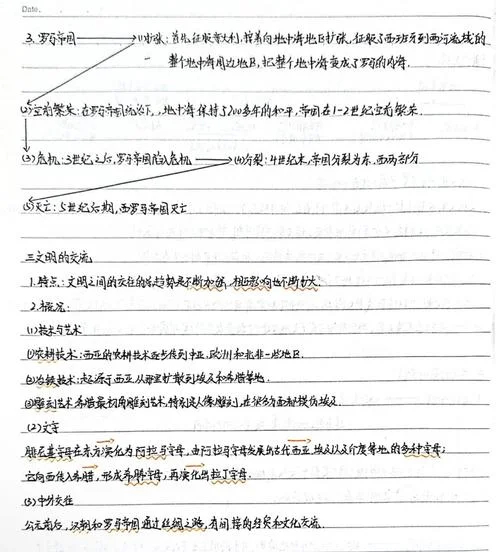 Date.
3. 罗马帝国 → (1)扩张: 首先征服意大利, 接着向地中海地区扩张, 征服了西班牙到两河流域的
整个地中海周边地区, 把整个地中海变成了罗马的内海.
(2)空前繁荣: 在罗马帝国统治下, 地中海保持了200多年的和平, 帝国在1-2世纪空前繁荣.
(3)危机: 3世纪之后, 罗马帝国陷入危机 → (4)分裂: 4世纪末, 帝国分裂为东、西两部分
(5)灭亡: 5世纪后期, 西罗马帝国灭亡
三文明的交流
1. 特点: 文明之间的交往的总趋势是不断加强, 相互影响也不断扩大.
2. 概况:
(1)技术与艺术
①农耕技术: 西亚的农耕技术逐步传到中亚、欧洲和北非一些地区.
②冶铁技术: 起源于西亚, 从那里扩散到埃及和希腊等地.
③雕刻艺术: 希腊最初用雕刻艺术, 特别是人像雕刻, 在很多方面模仿埃及.
(2)文字
腓尼基字母在东方演化为阿拉马字母, 由阿拉马字母发展出古代西亚、埃及以及印度等地的多种字母;
它向西传入希腊, 形成希腊字母, 再演化出拉丁字母.
(3)中外交往
公元前后, 汉朝和罗马帝国通过丝绸之路, 有间接的经贸和文化交流.